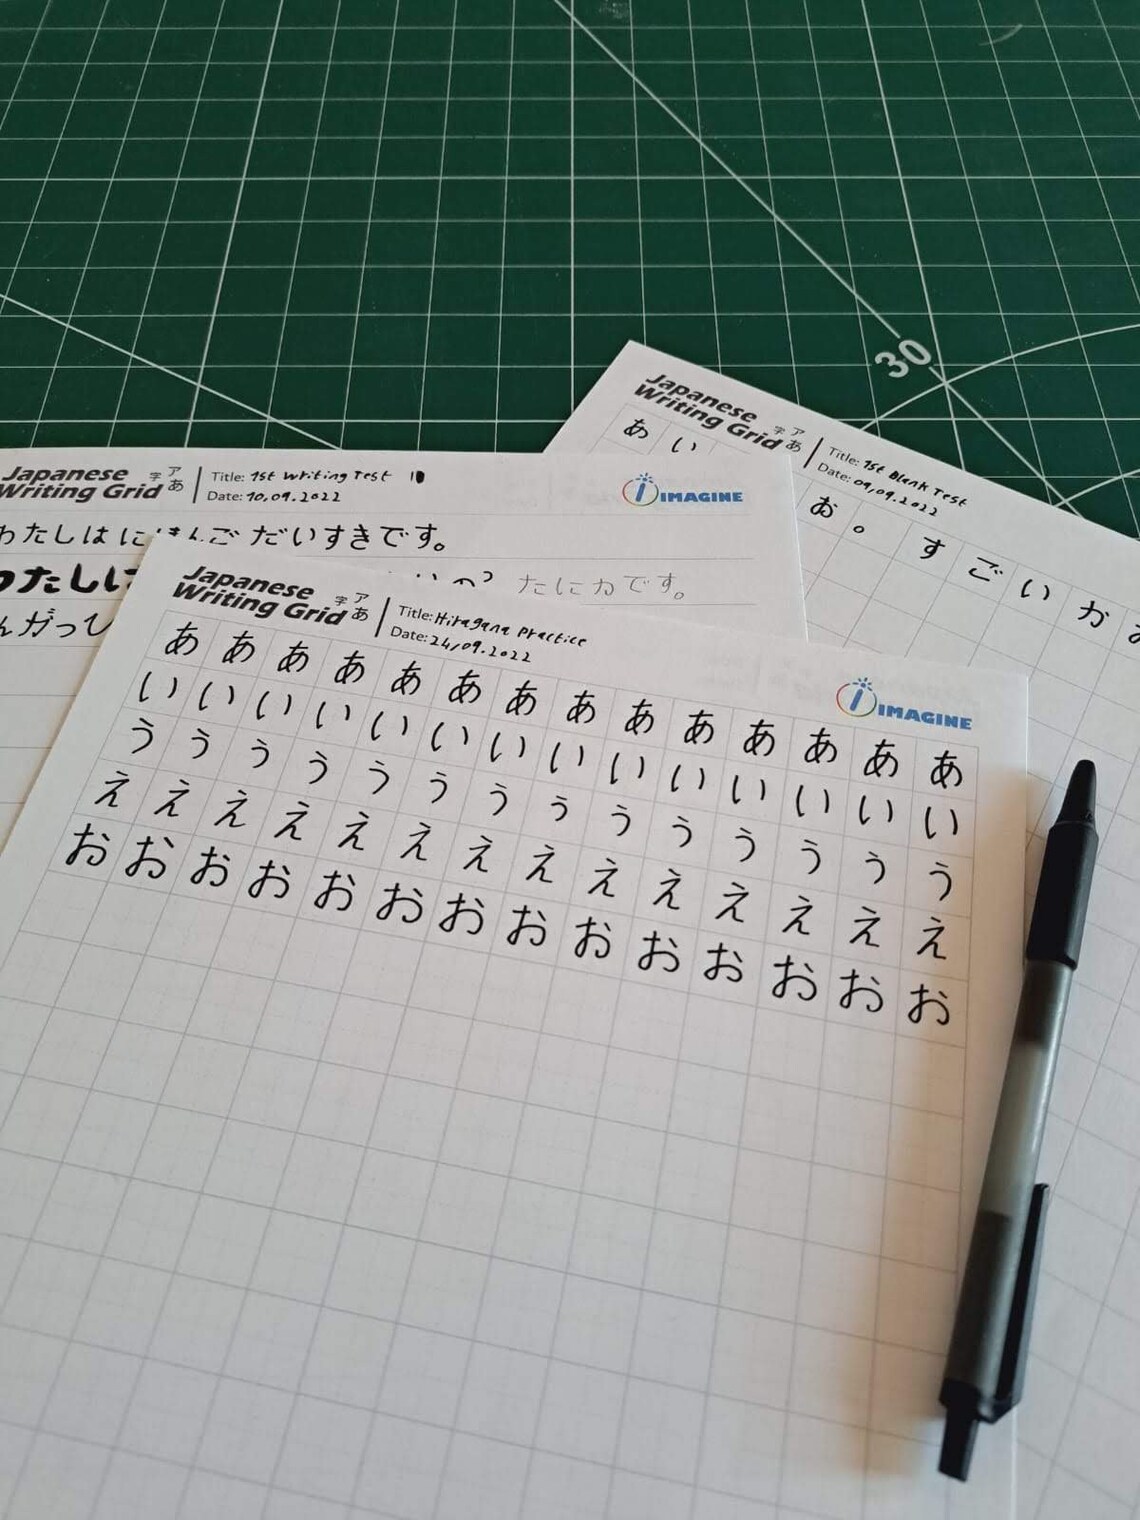 30
Japanese
Writing Grid 字 ア あ
Title: 1st Blank Test
Date: 09,09.2022
あ い
お 。 す ご い か
Japanese
Writing Grid 字 ア あ
Title: 1st Writing Test
Date: 10,09.2022
IMAGINE
わたしはにほんごだいすきです。
わたしに
たにかです。
んがっひ
Japanese
Writing Grid 字 ア あ
Title: Hiragana Practice
Date: 24,09.2022
IMAGINE
あ あ あ あ あ あ あ あ あ あ あ あ あ あ
い い い い い い い い い い い い い い
う う う う う う う う う う う う う う
え え え え え え え え え え え え え え
お お お お お お お お お お お お お お